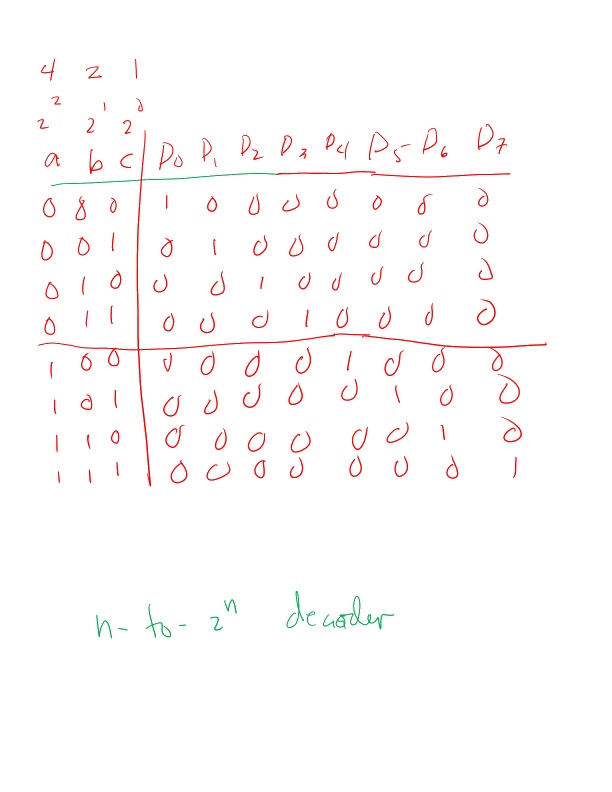 4 2 1
2 1 0
2 2 2
a b c D0 D1 D2 D3 D4 D5 D6 D7
0 0 0 1 0 0 0 0 0 0 0
0 0 1 0 1 0 0 0 0 0 0
0 1 0 0 0 1 0 0 0 0 0
0 1 1 0 0 0 1 0 0 0 0
1 0 0 0 0 0 0 1 0 0 0
1 0 1 0 0 0 0 0 1 0 0
1 1 0 0 0 0 0 0 0 1 0
1 1 1 0 0 0 0 0 0 0 1
n-to-2^n decoder